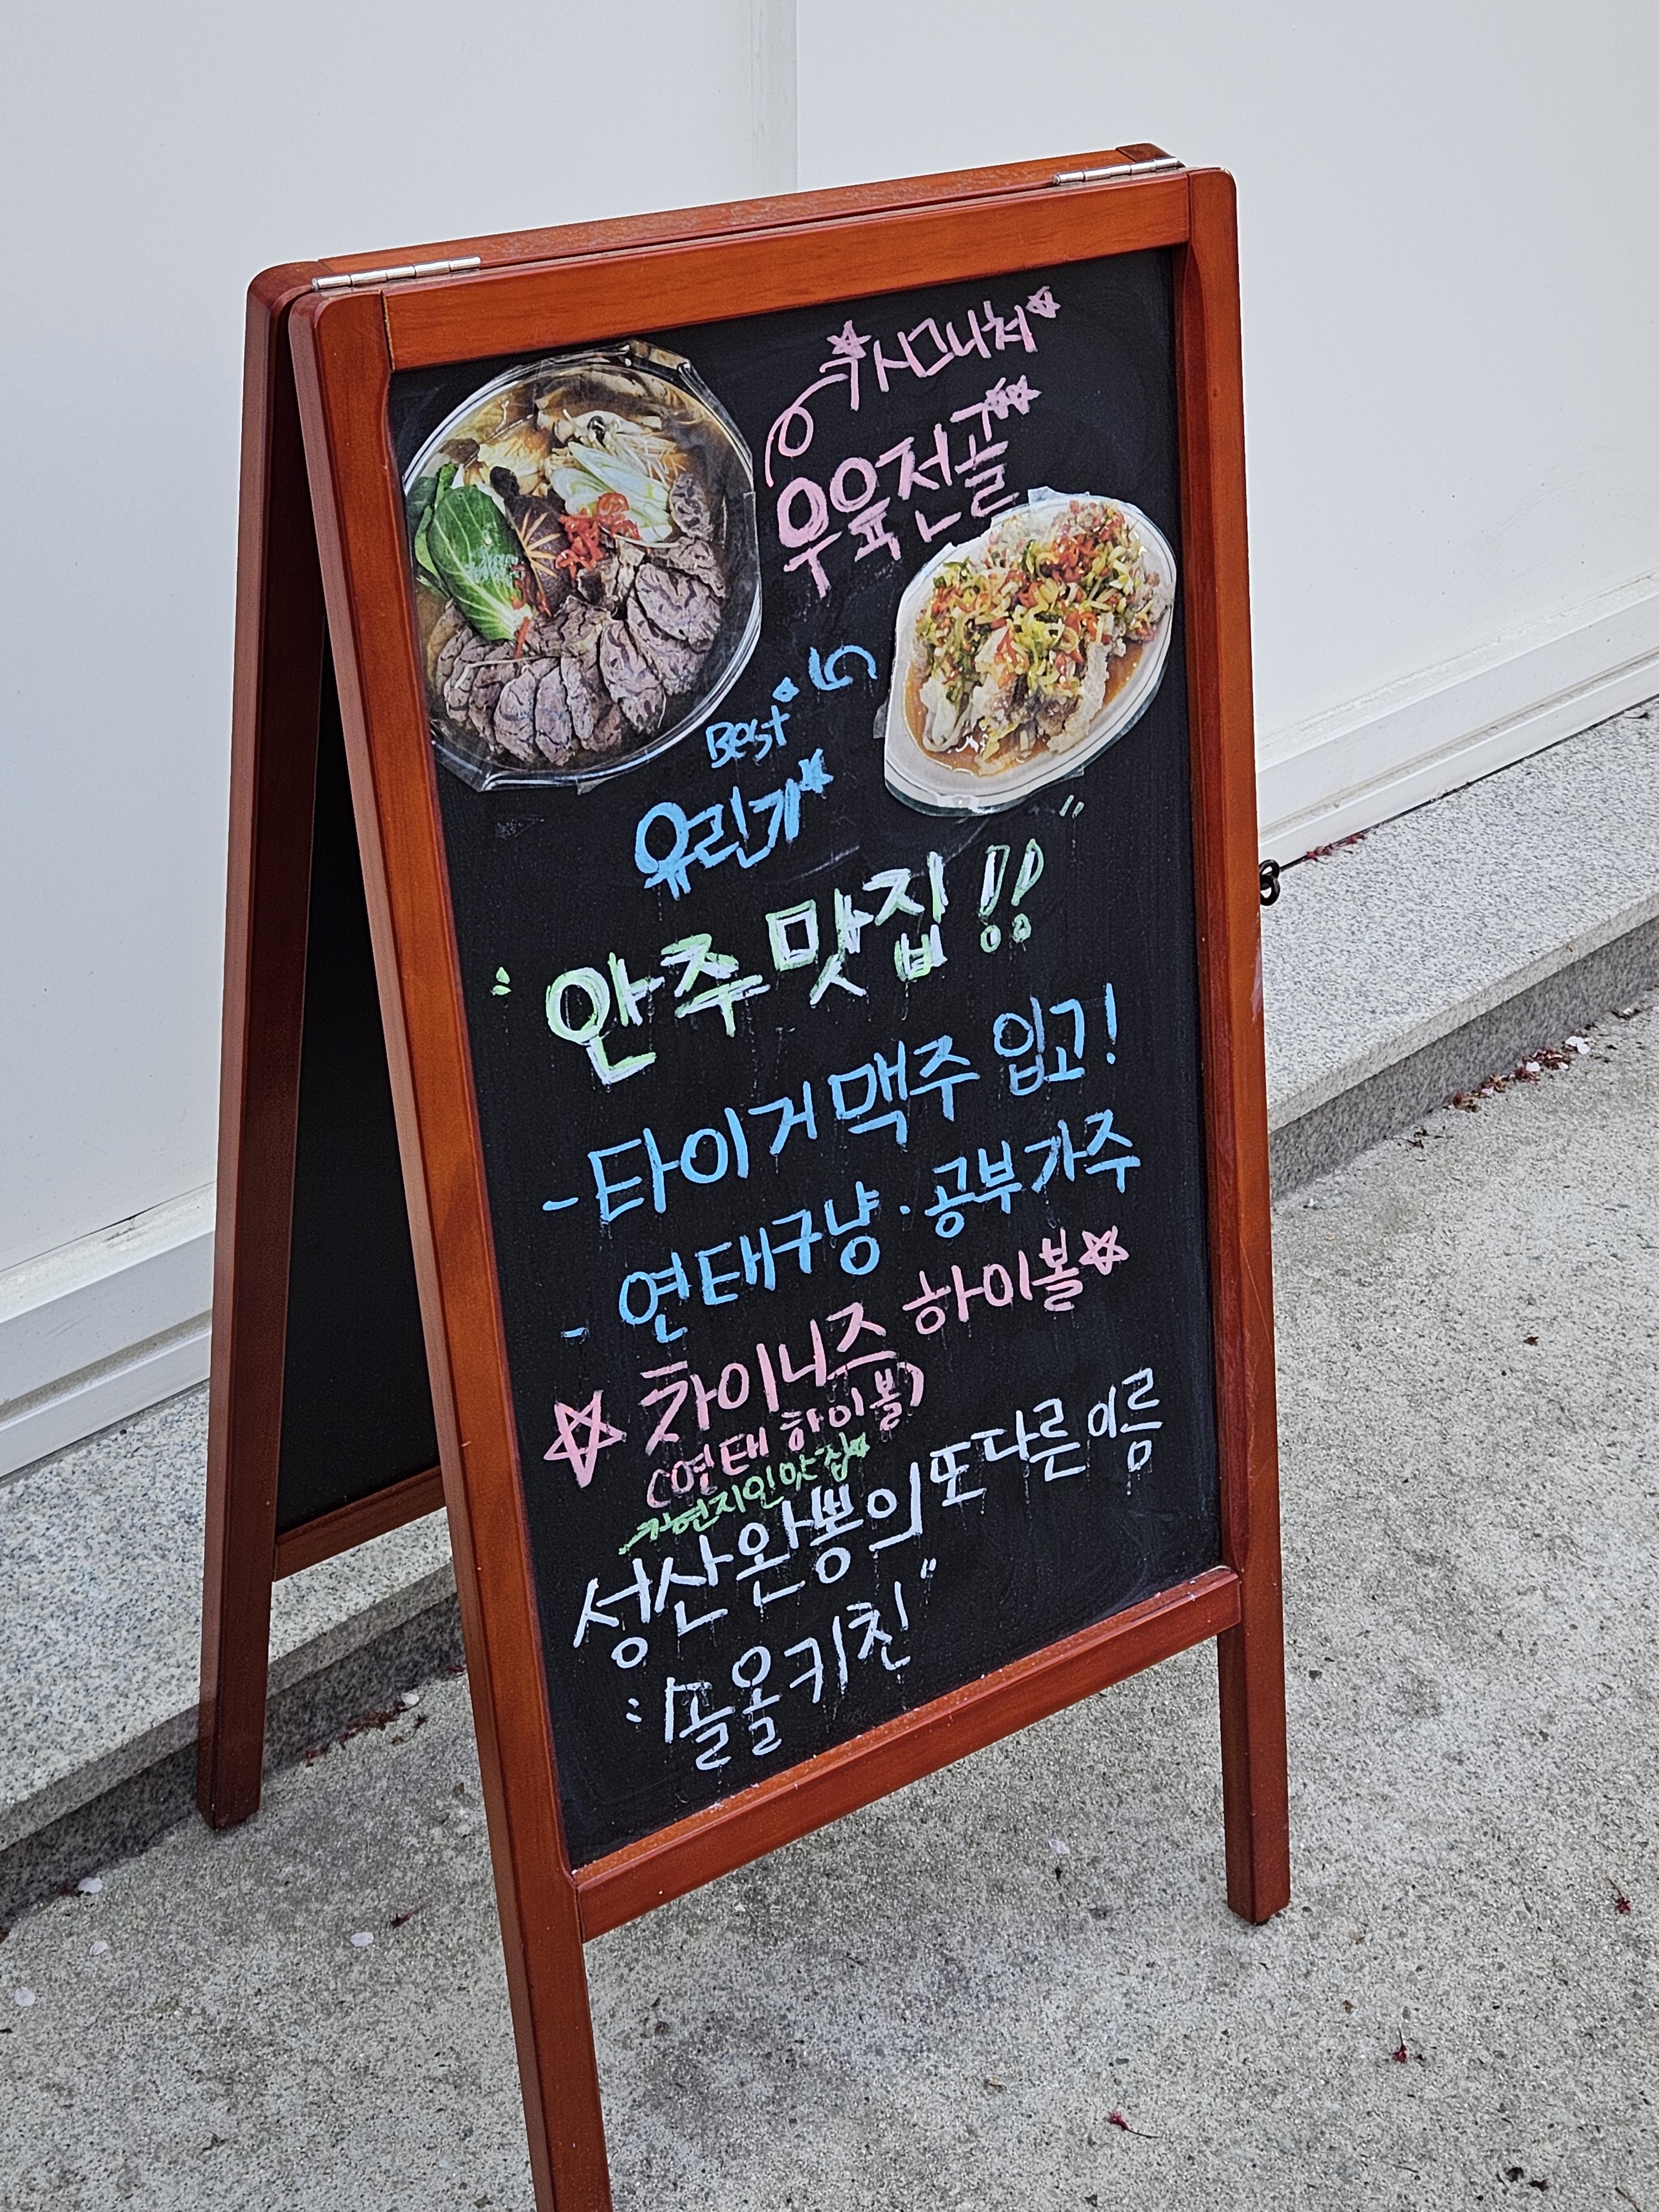 시그니처
우육전골
Best
유린기
"안주맛집!!"
-타이거맥주 입고!
- 연태구냥·공부가주
☆ 차이니즈 하이볼☆
(연태 하이볼)
현지인맛집
성산완뽕의 또다른 이름
키친"